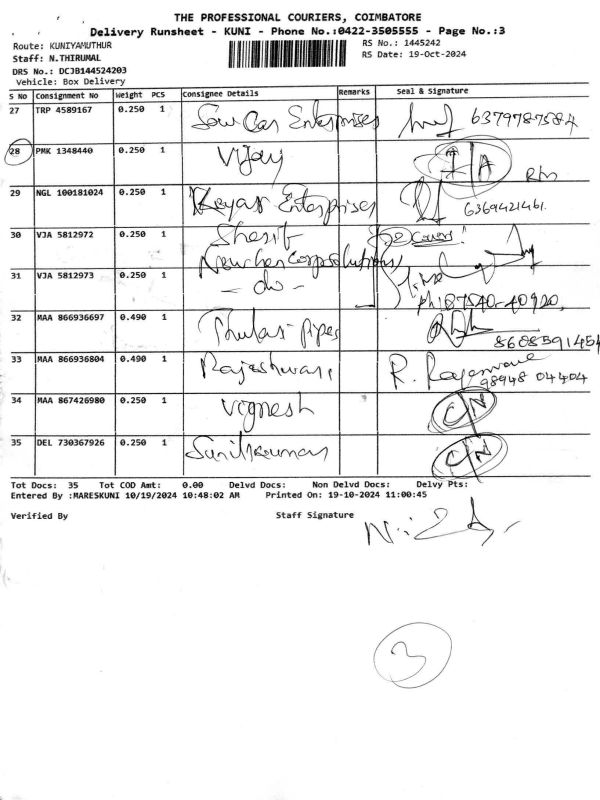 THE PROFESSIONAL COURIERS, COIMBATORE
Delivery Runsheet - KUNI - Phone No.:0422-3505555 - Page No.:3
Route: KUNIYAMUTHUR RS No.: 1445242
Staff: N.THIRUMAL RS Date: 19-Oct-2024
DRS No.: DCJB144524203
Vehicle: Box Delivery
S No Consignment No Weight PCS Consignee Details Remarks Seal & Signature
27 TRP 4589167 0.250 1 Enterprises 6379787584
28 PMK 1348440 0.250 1 Vijay I/A
29 NGL 100181024 0.250 1 Keyar Enterprises 6369421461.
30 VJA 5812972 0.250 1 Sherif
31 VJA 5812973 0.250 1 - do - Ph: 87540-40920,
32 MAA 866936697 0.490 1 Thulasi Pipes 8608591454
33 MAA 866936804 0.490 1 Rajeshwari R. 98948 04404
34 MAA 867426980 0.250 1 Vignesh C/N
35 DEL 730367926 0.250 1 Sunilkumar C/N
Tot Docs: 35 Tot COD Amt: 0.00 Delvd Docs: Non Delvd Docs: Delvy Pts:
Entered By :MARESKUNI 10/19/2024 10:48:02 AM Printed On: 19-10-2024 11:00:45
Verified By Staff Signature
3